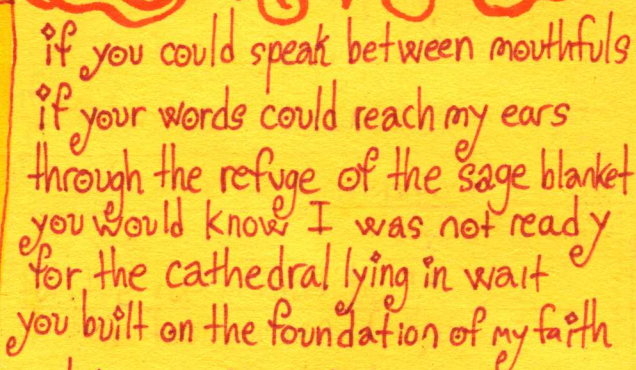 if you could speak between mouthfuls
if your words could reach my ears
through the refuge of the sage blanket
you would know I was not ready
for the cathedral lying in wait
you built on the foundation of my faith